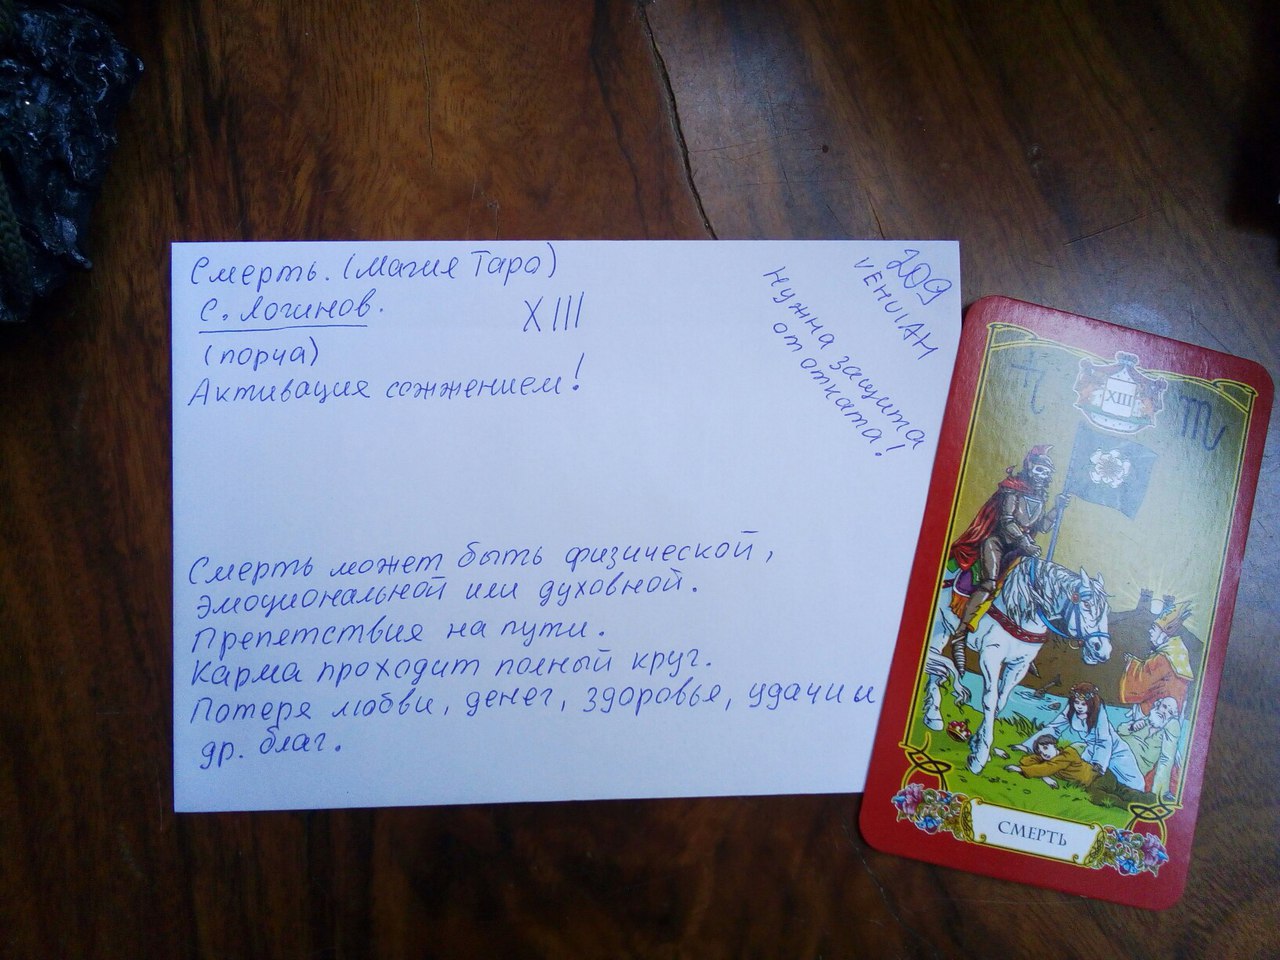 Смерть. (Магия Таро)
С. Логинов.
XIII
(порча)
Активация сожжением!
209
VEHUIAH
Нужна защита
от отката!
Смерть может быть физической,
эмоциональной или духовной.
Препятствия на пути.
Карма проходит полный круг.
Потеря любви, денег, здоровья, удачи и
др. благ.
XIII
СМЕРТЬ